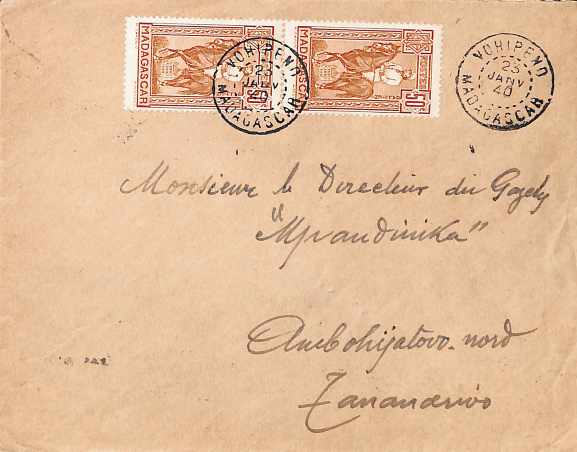 MADAGASCAR
MADAGASCAR
50c
VOHIPENO
23
JANV
40
MADAGASCAR
VOHIPENO
23
JANV
40
MADAGASCAR
Monsieur le Directeur du Gazety
"Mpandinika"
Ambohijatovo-nord
Tananarivo